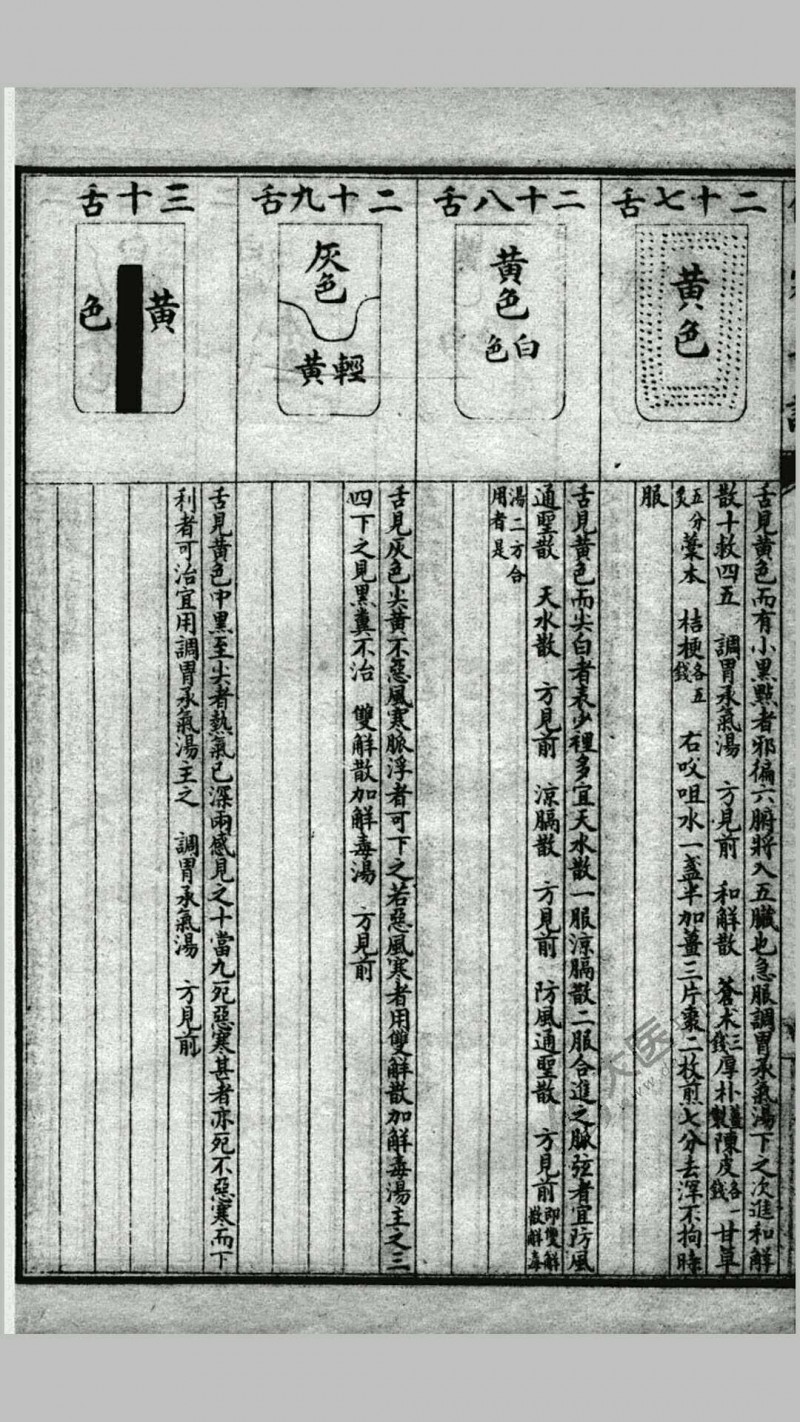 二十七舌
黄色
舌見黄色而有小黑點者邪徧六腑將入五臟也急服調胃承氣湯下之次進和解
散十救四五　調胃承氣湯　方見前　和解散　蒼术三錢厚朴薑製陳皮各一錢甘草
五分炙藁本　桔梗各五錢　右㕮咀水一盞半加薑三片棗二枚煎七分去滓不拘時
服
二十八舌
黄色
白色
舌見黄色而尖白者表少裡多宜天水散一服凉膈散二服合進之脈弦者宜防風
通聖散　天水散　方見前　涼膈散　方見前　防風通聖散　方見前即雙解散解毒
湯二方合用者是
二十九舌
灰色
輕黄
舌見灰色尖黄不惡風寒脈浮者可下之若惡風寒者用雙解散加解毒湯主之三
四下之見黑糞不治　雙解散加解毒湯　方見前
三十舌
黄色
舌見黄色中黑至尖者熱氣已深兩感見之十當九死惡寒甚者亦死不惡寒而下
利者可治宜用調胃承氣湯主之　調胃承氣湯　方見前
大医